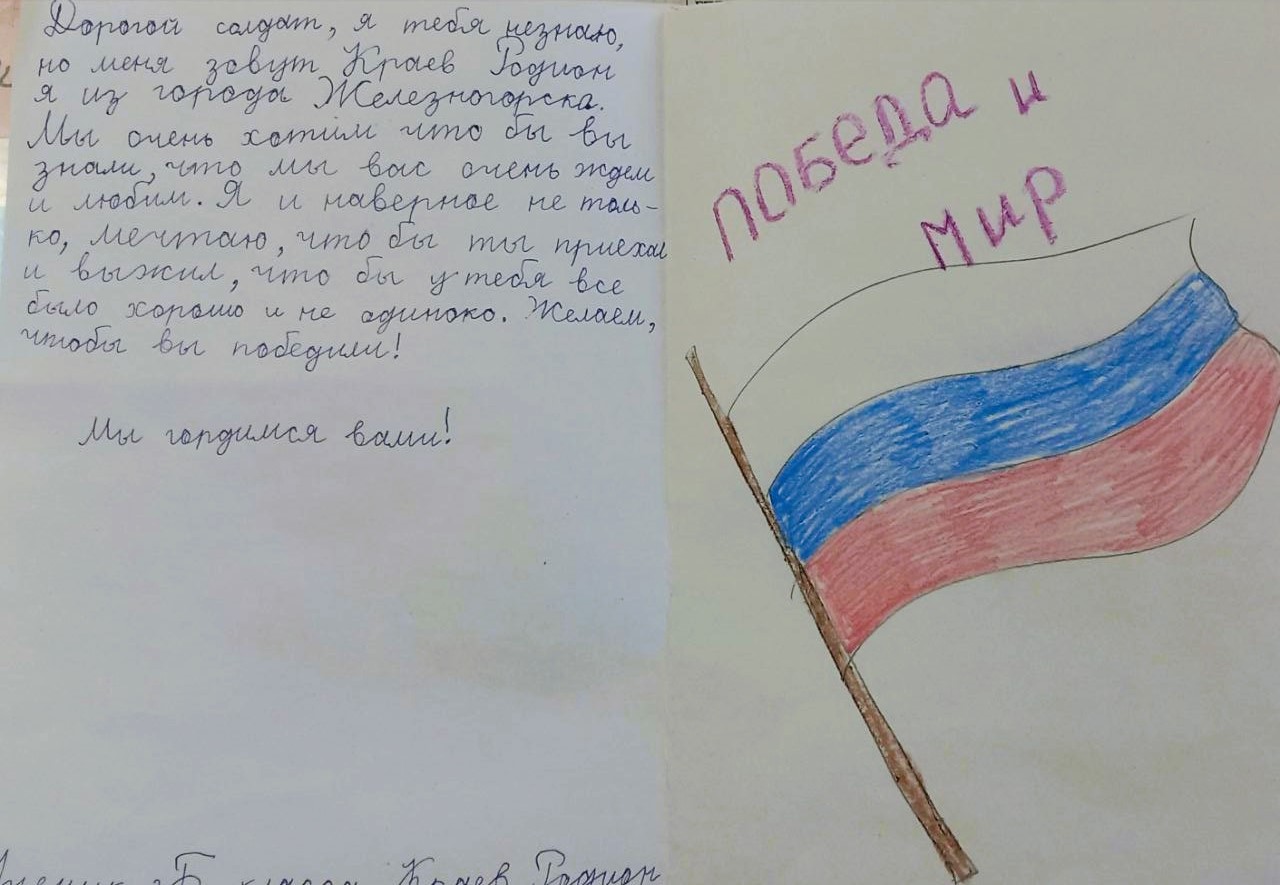 Дорогой солдат, я тебя незнаю,
но меня зовут Краев Родион
я из города Железногорска.
Мы очень хотим что бы вы
знали, что мы вас очень ждем
и любим. Я и наверное не толь-
ко, мечтаю, что бы ты приехал
и выжил, что бы у тебя все
было хорошо и не одиноко. Желаем,
чтобы вы победили!
Мы гордимся вами!
класса Краев Родион
ПОБЕДА и
Мир